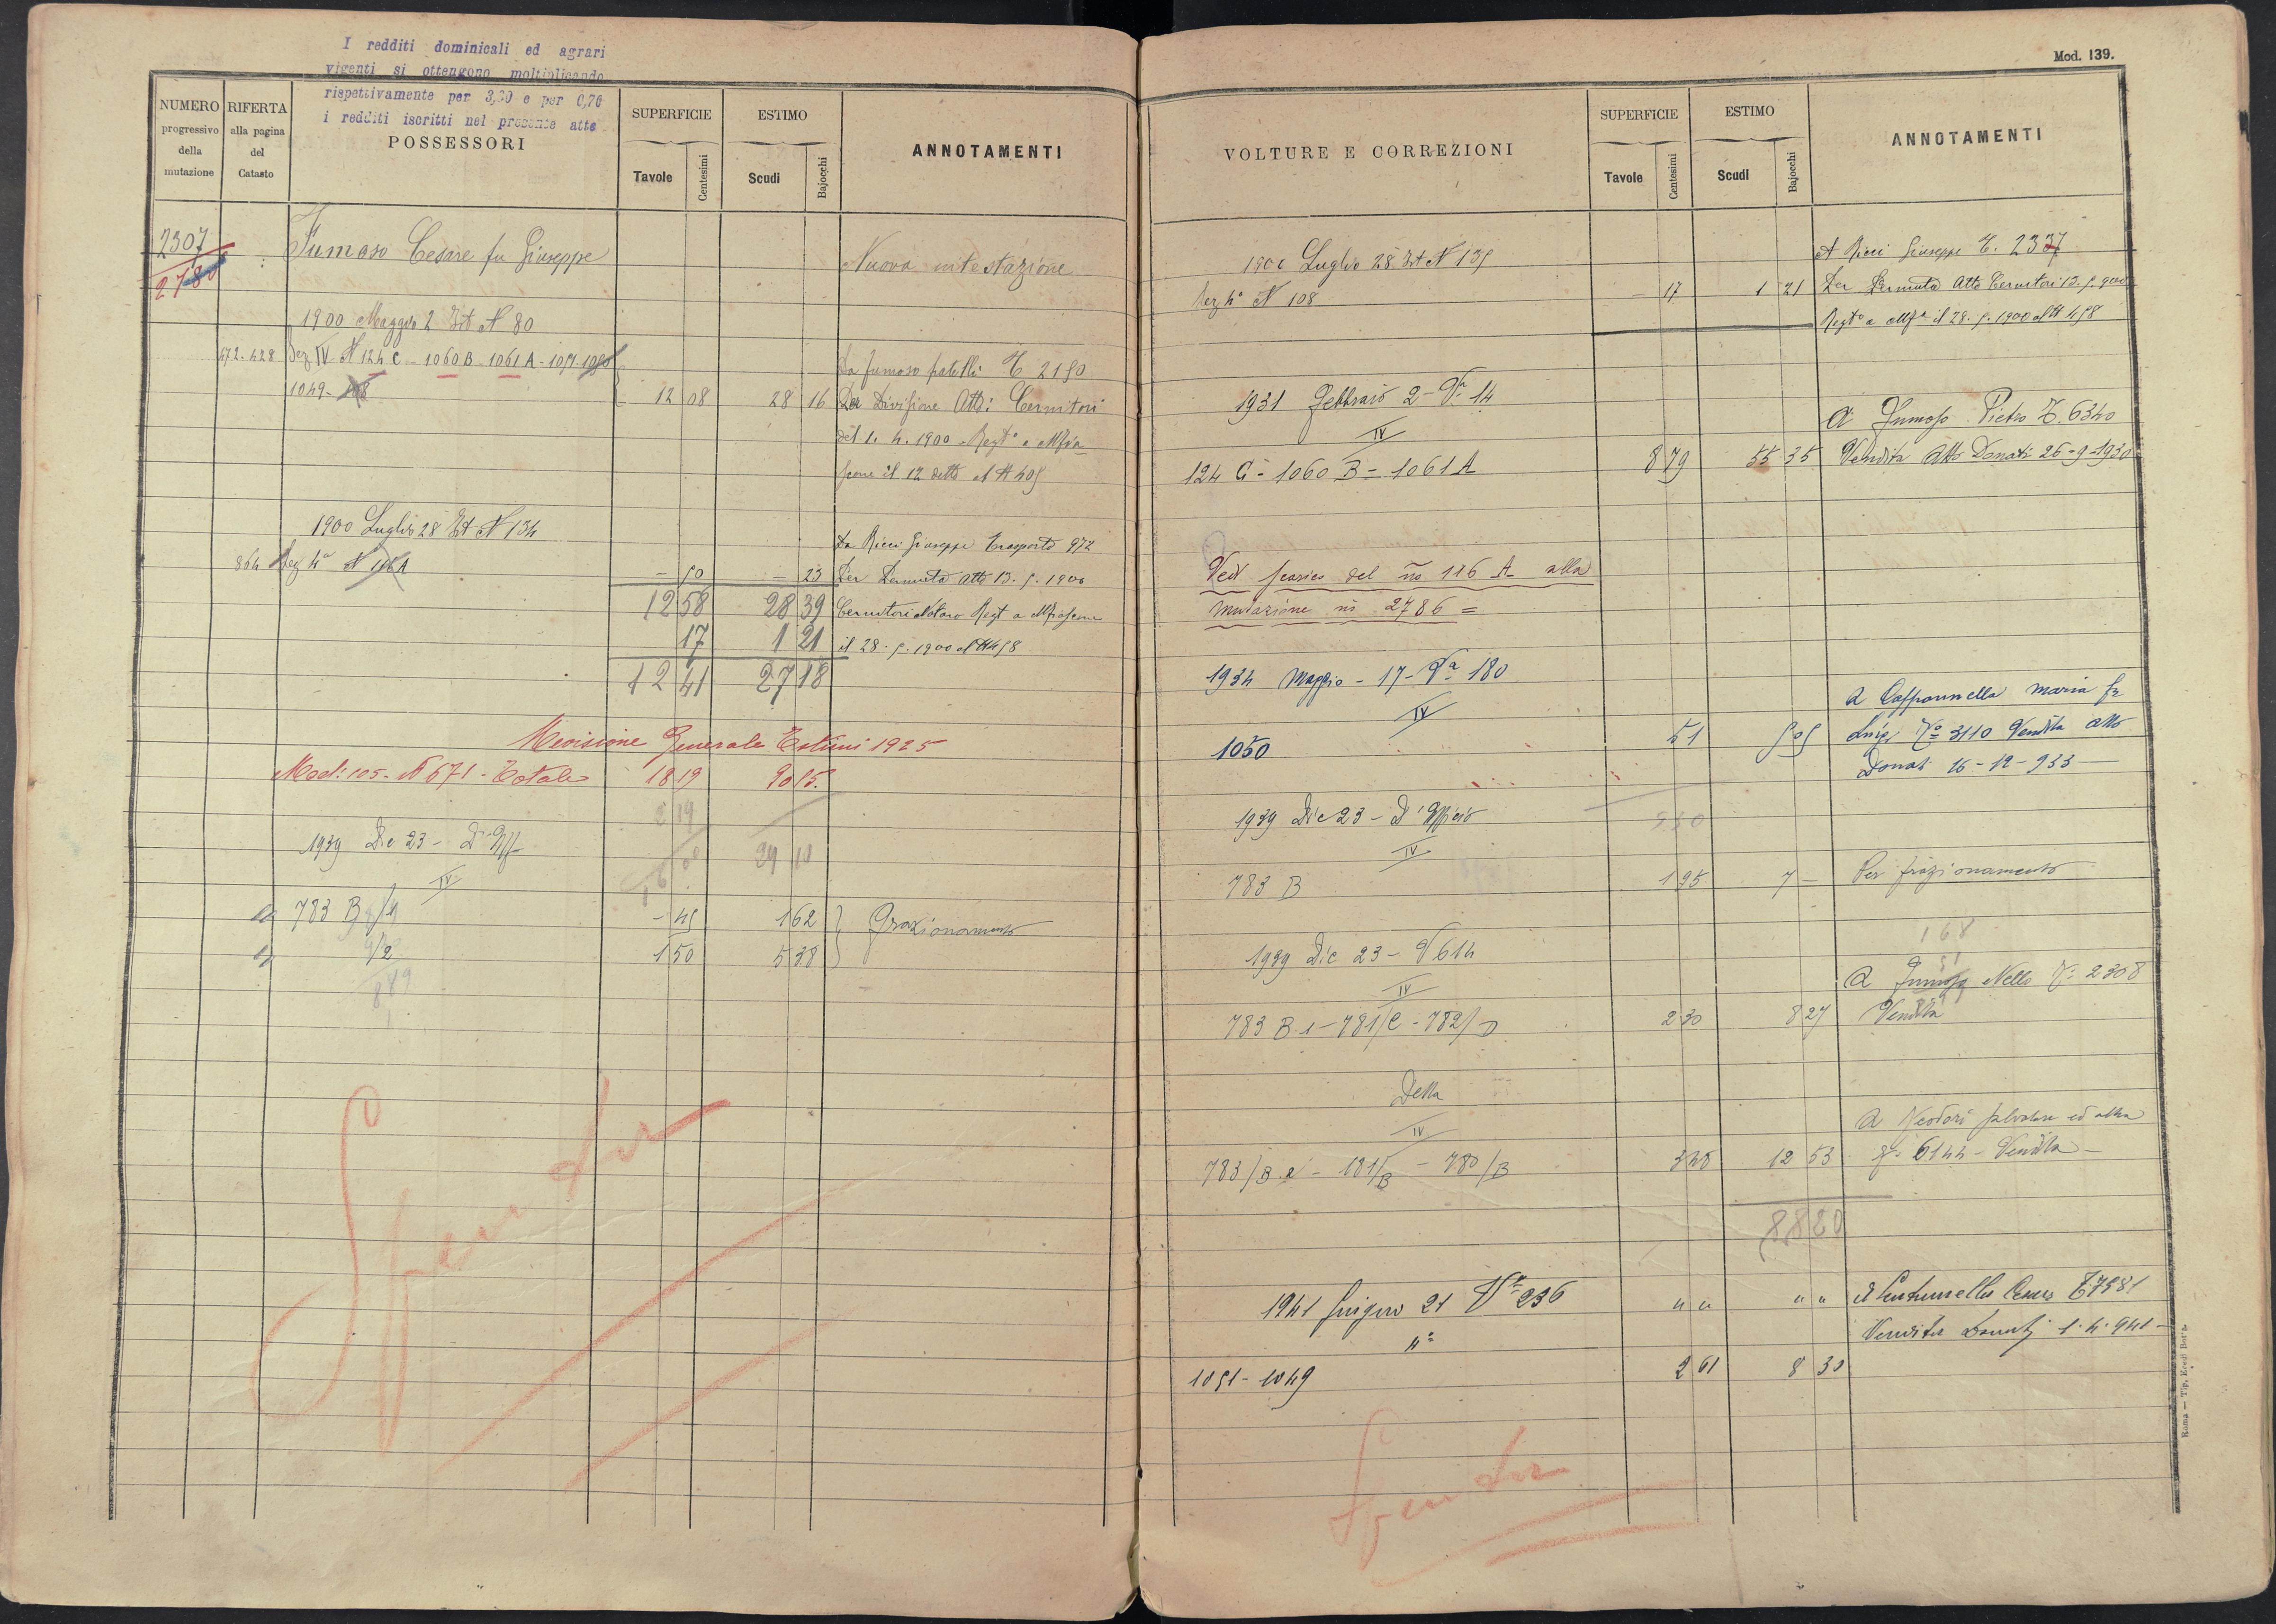 I redditi dominicali ed agrari
vigenti si ottengono moltiplicando
rispettivamente per 3,30 e per 0,76
i redditi iscritti nel presente atto
NUMERO
progressivo
della
mutazione
RIFERTA
alla pagina
del
Catasto
POSSESSORI
SUPERFICIE
Tavole
Centesimi
ESTIMO
Scudi
Bajocchi
ANNOTAMENTI
2307
2780
Fumaso Cesare fu Giuseppe
Nuova intestazione
1900 Maggio 2 N 80
472-428 Sez IV N 124 C - 1060 B - 1061 A - 1051 - 1050
Da Fumaso fratelli 2190
1049 - 108
12 08 28 16 Per Divisione Atti Cernitori
del 1. 4. 1900 - Regto a Mfia
scone il 12 detto al N 405
1900 Luglio 28 N 134
Da Ricci Giuseppe Trasporto 972
864 Sez 4a N 116 A
- 50 - 23 Per Permuta Atto 13. 5. 1900
12 58 28 39 Cernitori Notaro Regt a Mfiascone
17 1 21 il 28. 5. 1900 al N 458
12 41 27 18
Revisione Generale Estimi 1925
Mod: 105 - N 671 - Totale 18 19 90 15
2 19
1939 Dic 23 - D'Uff
16 00 29 10
IV
783 B/1 - 45 1 62 Frazionamento
/2 1 50 5 38
889
Spento
Mod. 139.
VOLTURE E CORREZIONI
SUPERFICIE
Tavole
Centesimi
ESTIMO
Scudi
Bajocchi
ANNOTAMENTI
1900 Luglio 28 N 135
A Ricci Giuseppe T. 2337
Sez 4a N 108 - 17 1 21 Per Permuta Atto Cernitori 13. 5. 900
Regto a Mfia il 28. 5. 1900 al N 458
1931 Febbraio 2 - Va 14
A Fumaso Pietro T. 6340
IV
124 C - 1060 B - 1061 A 8 79 55 35 Vendita Atto Donati 26-9-1930
Vedi scarico del no 116 A alla
mutazione no 2786 =
1934 Maggio - 17 - Va 180
IV
A Cappannella Maria fu
1050 51 505 Luigi 3110 Vendita atto
Donati 16-12-933
1939 Dic 23 - D'Ufficio
IV
783 B 1 95 7 - Per frazionamento
168
1939 Dic 23 - V 614
IV
A Fumaso Nello 2308
783 B 1 - 781/C - 782/D 2 30 8 27 Vendita
Detta
IV
783/B 2 - 181/B - 780/B 3 48 12 53 6144 - Vendita
88 20
1941 Giugno 21 Va 236 " " " " T. 7581
Vendita Donati 1-4-941
1051 - 1049 2 61 8 30
Spento
Roma — Tip. Eredi Botta